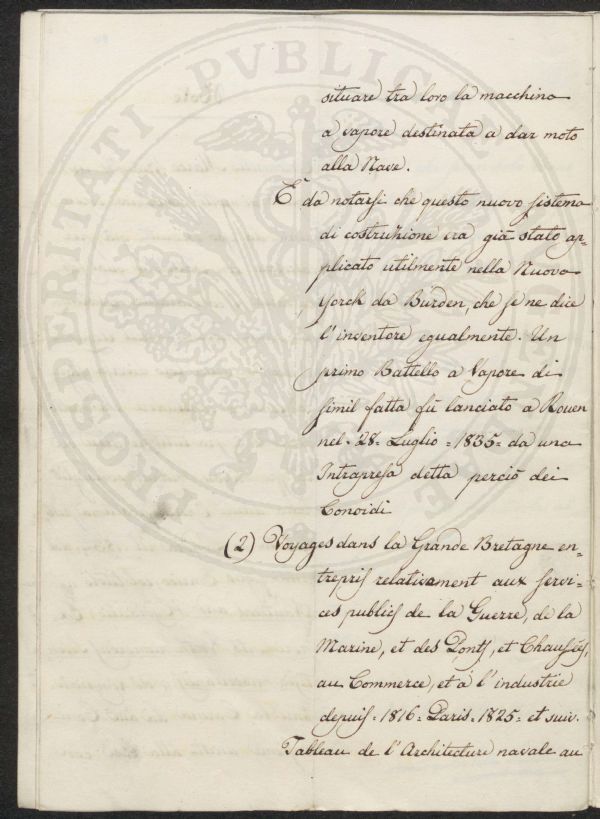 situare tra loro la macchina
a vapore destinata a dar moto
alla Nave.
È da notarsi che questo nuovo sistema
di costruzione era già stato ap=
plicato utilmente nella Nuova
Yorck da Burden, che se ne dice
l'inventore egualmente. Un
primo Battello a Vapore di
simil fatta fù lanciato a Rouen
nel = 28 = Luglio = 1835 = da una
Intrapresa detta perciò dei
Conoidi
(2) Voyages dans la Grande Bretagne en=
trepris relativement aux servi=
ces publics de la Guerre, de la
Marine, et des Ponts, et Chaussées,
au Commerce, et à l'industrie
depuis = 1816 = Paris = 1825 = et suiv.
Tableau de l'Architecture navale au
PROSPERITATI PVBLICAE